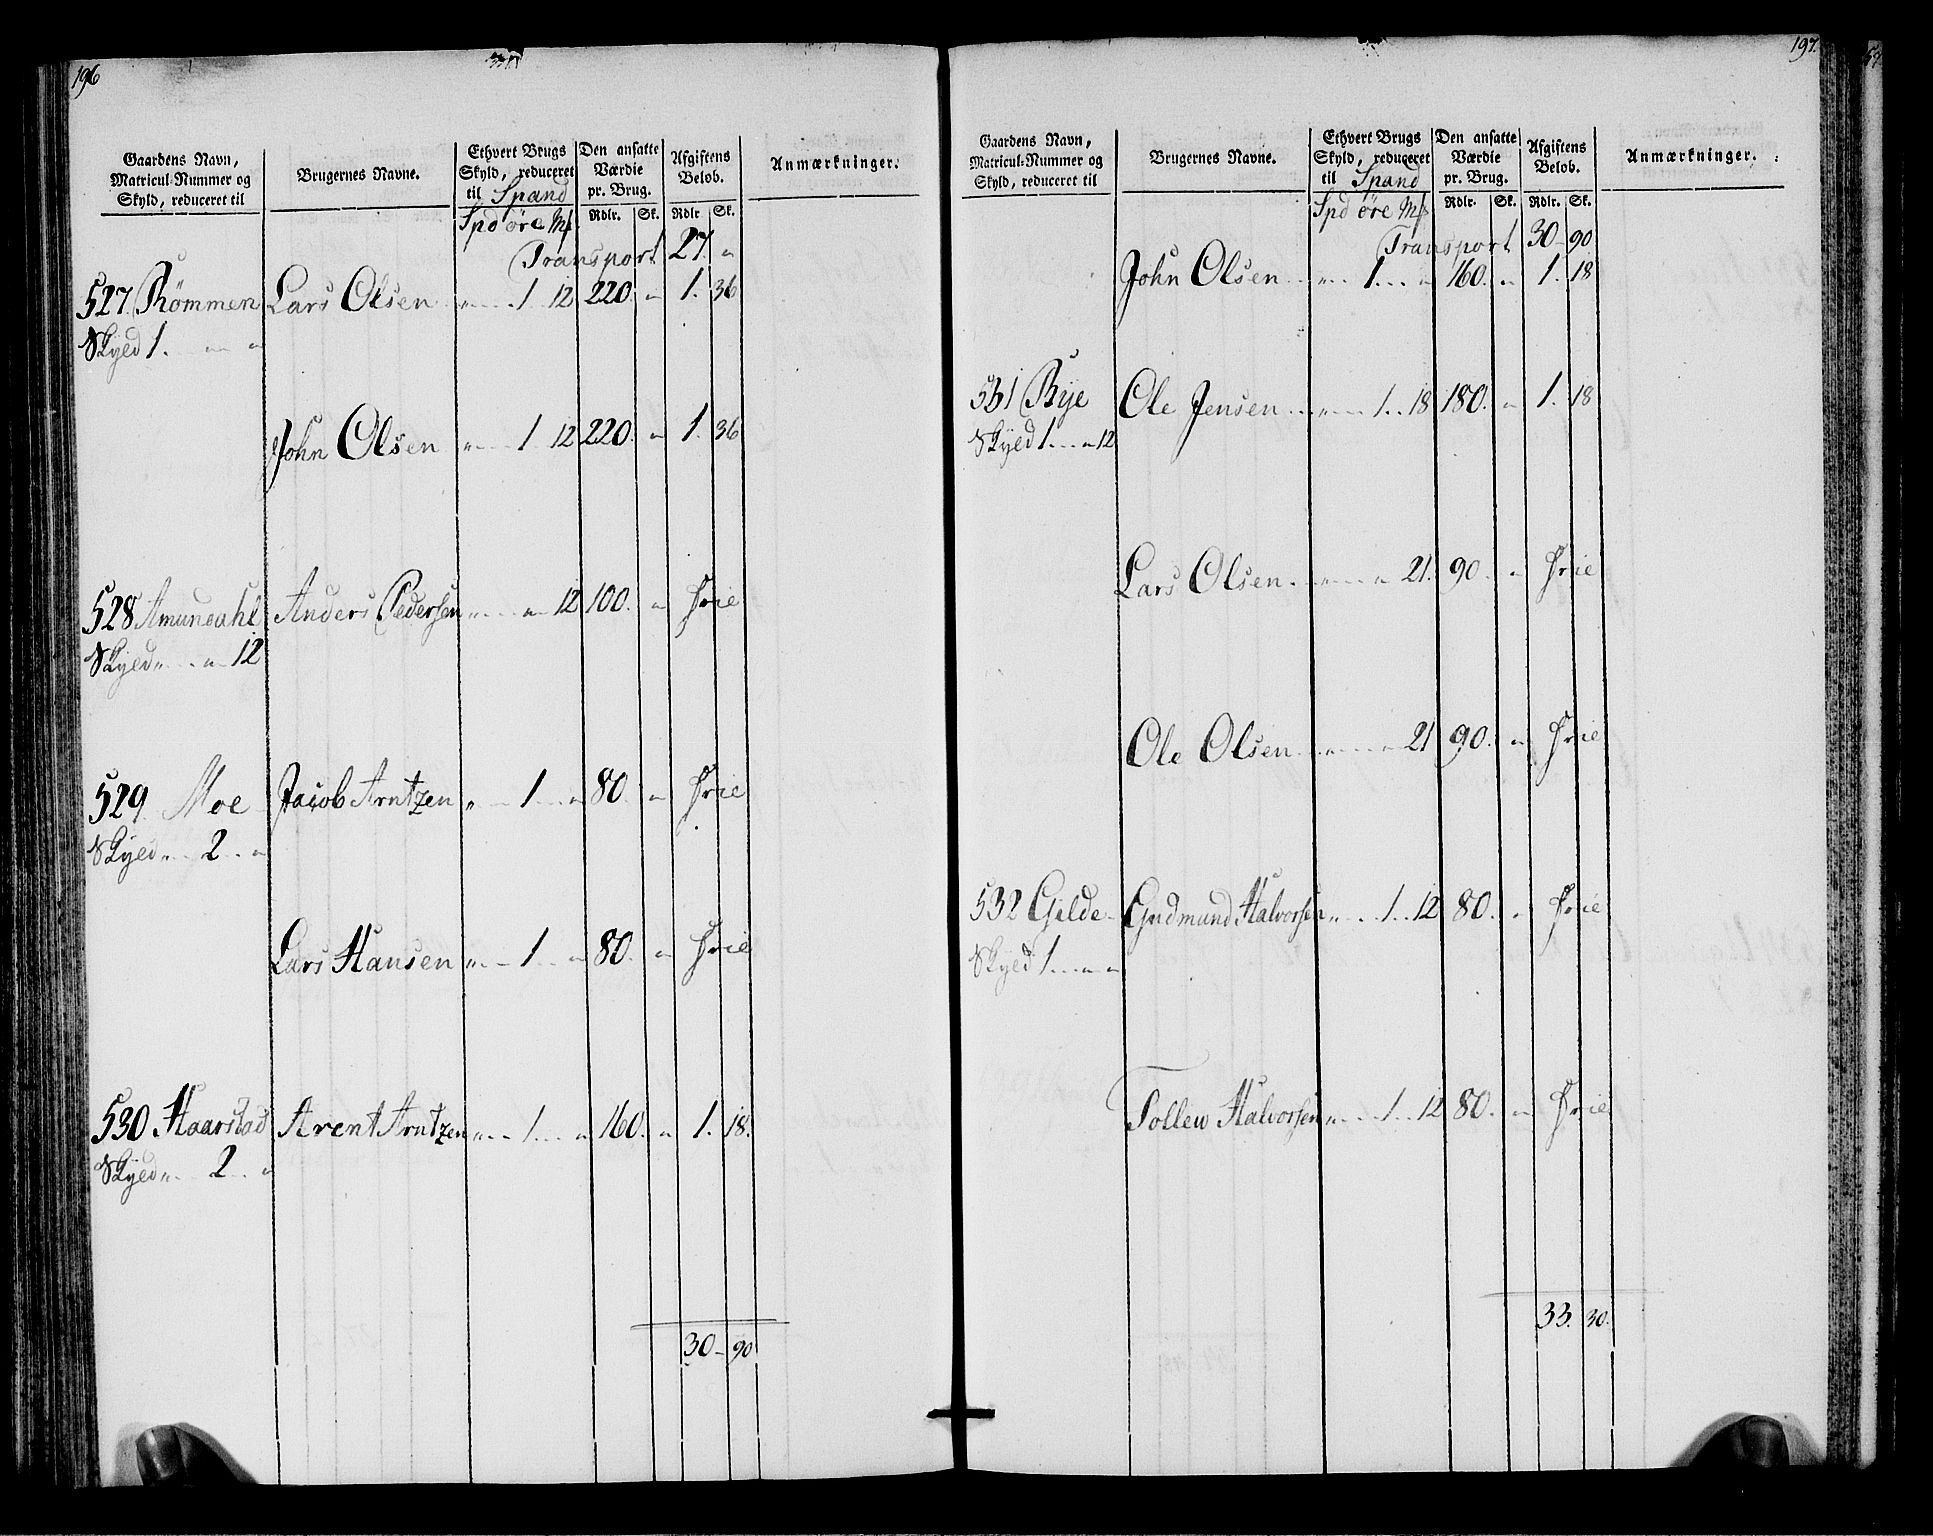 196
Gaardens Navn, Matricul-Nummer og Skyld, reduceret til
Brugernes Navne.
Ethvert Brugs Skyld, reduceret til Spand
Den ansatte Værdie pr. Brug.
Afgiftens Beløb.
Anmærkninger.
Spd öre Mk Rdlr. Sk. Rdlr. Sk.
Transport 27. "
527. Römmen Lars Olsen " 1 12 220. " 1. 36
Skyld 1. " "
John Olsen " 1 12 220. " 1. 36
528 Amundahl Anders Pedersen " " 12 100. " Frie
Skyld " " 12
529. Moe Jacob Arntzen " 1 " 80. " Frie
Skyld " 2 "
Lars Hansen " 1 " 80. " Frie
530 Haarstad Arent Arntzen " 1 " 160. " 1. 18.
Skyld " 2 "
30 - 90
197.
Gaardens Navn, Matricul-Nummer og Skyld, reduceret til
Brugernes Navne.
Ethvert Brugs Skyld, reduceret til Spand
Den ansatte Værdie pr. Brug.
Afgiftens Beløb.
Anmærkninger.
Spd öre Mk Rdlr. Sk. Rdlr. Sk.
Transport 30 - 90
John Olsen " 1 " 160. " 1. 18
531 Rye Ole Jensen " 1 18 180. " 1. 18
Skyld 1 " 12
Lars Olsen " " 21. 90. " Frie
Ole Olsen " " 21 90. " Frie
532 Gjelde Gudmund Halvorsen " 1 12 80. " Frie
Skyld 1 " "
Tollew Halvorsen " 1 12 80. " Frie
33. 30.